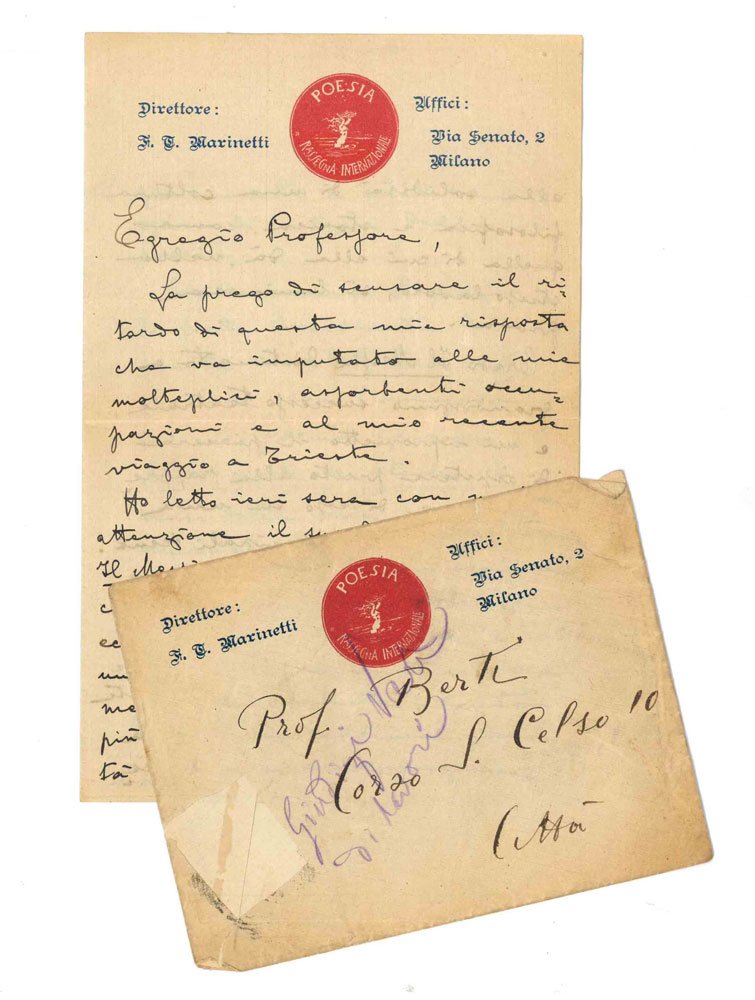 Direttore:
F. T. Marinetti
POESIA
RASSEGNA INTERNAZIONALE
Uffici:
Via Senato, 2
Milano
Egregio Professore,
La prego di scusare il ri=
tardo di questa mia risposta
che va imputato alle mie
molteplici, assorbenti occu=
pazioni e al mio recente
viaggio a Trieste.
Ho letto ieri sera con
attenzione il
Il
più
tà
Direttore:
F. T. Marinetti
POESIA
RASSEGNA INTERNAZIONALE
Uffici:
Via Senato, 2
Milano
Prof. Berti
Corso S. Celso 10
Città
Giudizi
di lavori